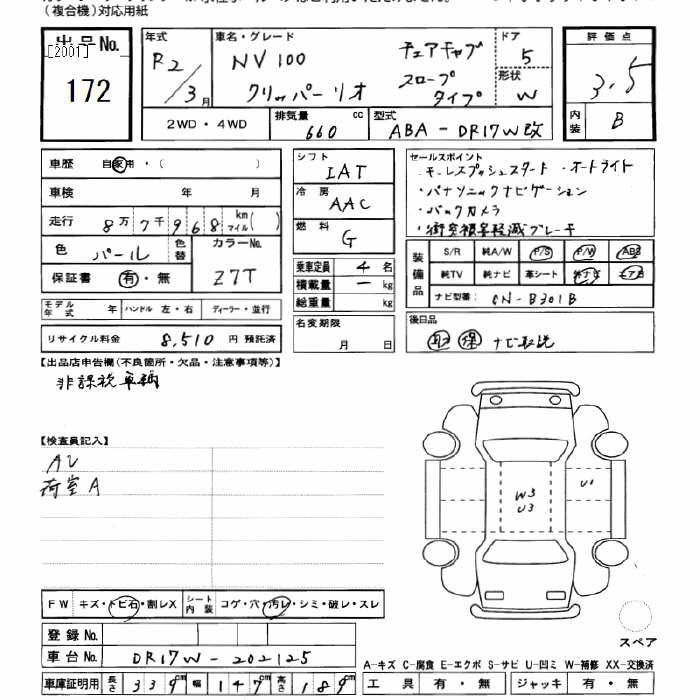 (複合機)対応用紙
出品No.
[2001]
172
年式
R2/3月
車名・グレード
NV100
クリッパーリオ
チェアキャブ
スロープ
タイプ
ドア
5
形状
W
評価点
3.5
内装
B
2WD・4WD
排気量
660
cc
型式
ABA-DR17W改
車歴 自家用・( )
車検 年 月
走行 8万7千968 km マイル( )
色 パール 色替 カラーNo. Z7T
保証書 有・無
モデル年式 年 ハンドル 左・右 ディーラー・並行
リサイクル料金 8,510 円 預託済
シフト
IAT
冷房
AAC
燃料
G
乗車定員 4 名
積載量 ー kg
総重量 kg
名変期限
月 日
セールスポイント
・キーレスプッシュスタート ・オートライト
・パナソニックナビゲーション
・バックカメラ
・衝突被害軽減ブレーキ
装備品
S/R 純A/W P/S P/W ABS
純TV 純ナビ 革シート 社ナビ エアB
ナビ型番: CN-B301B
後日品
取 保 ナビ取説
【出品店申告欄(不良箇所・欠品・注意事項等)】
非課税車輌
【検査員記入】
AU
荷室A
W3
U3
U1
FW キズ・トビ石・割レX
シート内装 コゲ・穴・汚レ・シミ・破レ・スレ
登録No.
車台No. DR17W-202125
車庫証明用 長さ 339cm 幅 147cm 高さ 189cm
スペア
A-キズ C-腐食 E-エクボ S-サビ U-凹ミ W-補修 XX-交換済
工具 有・無 ジャッキ 有・無